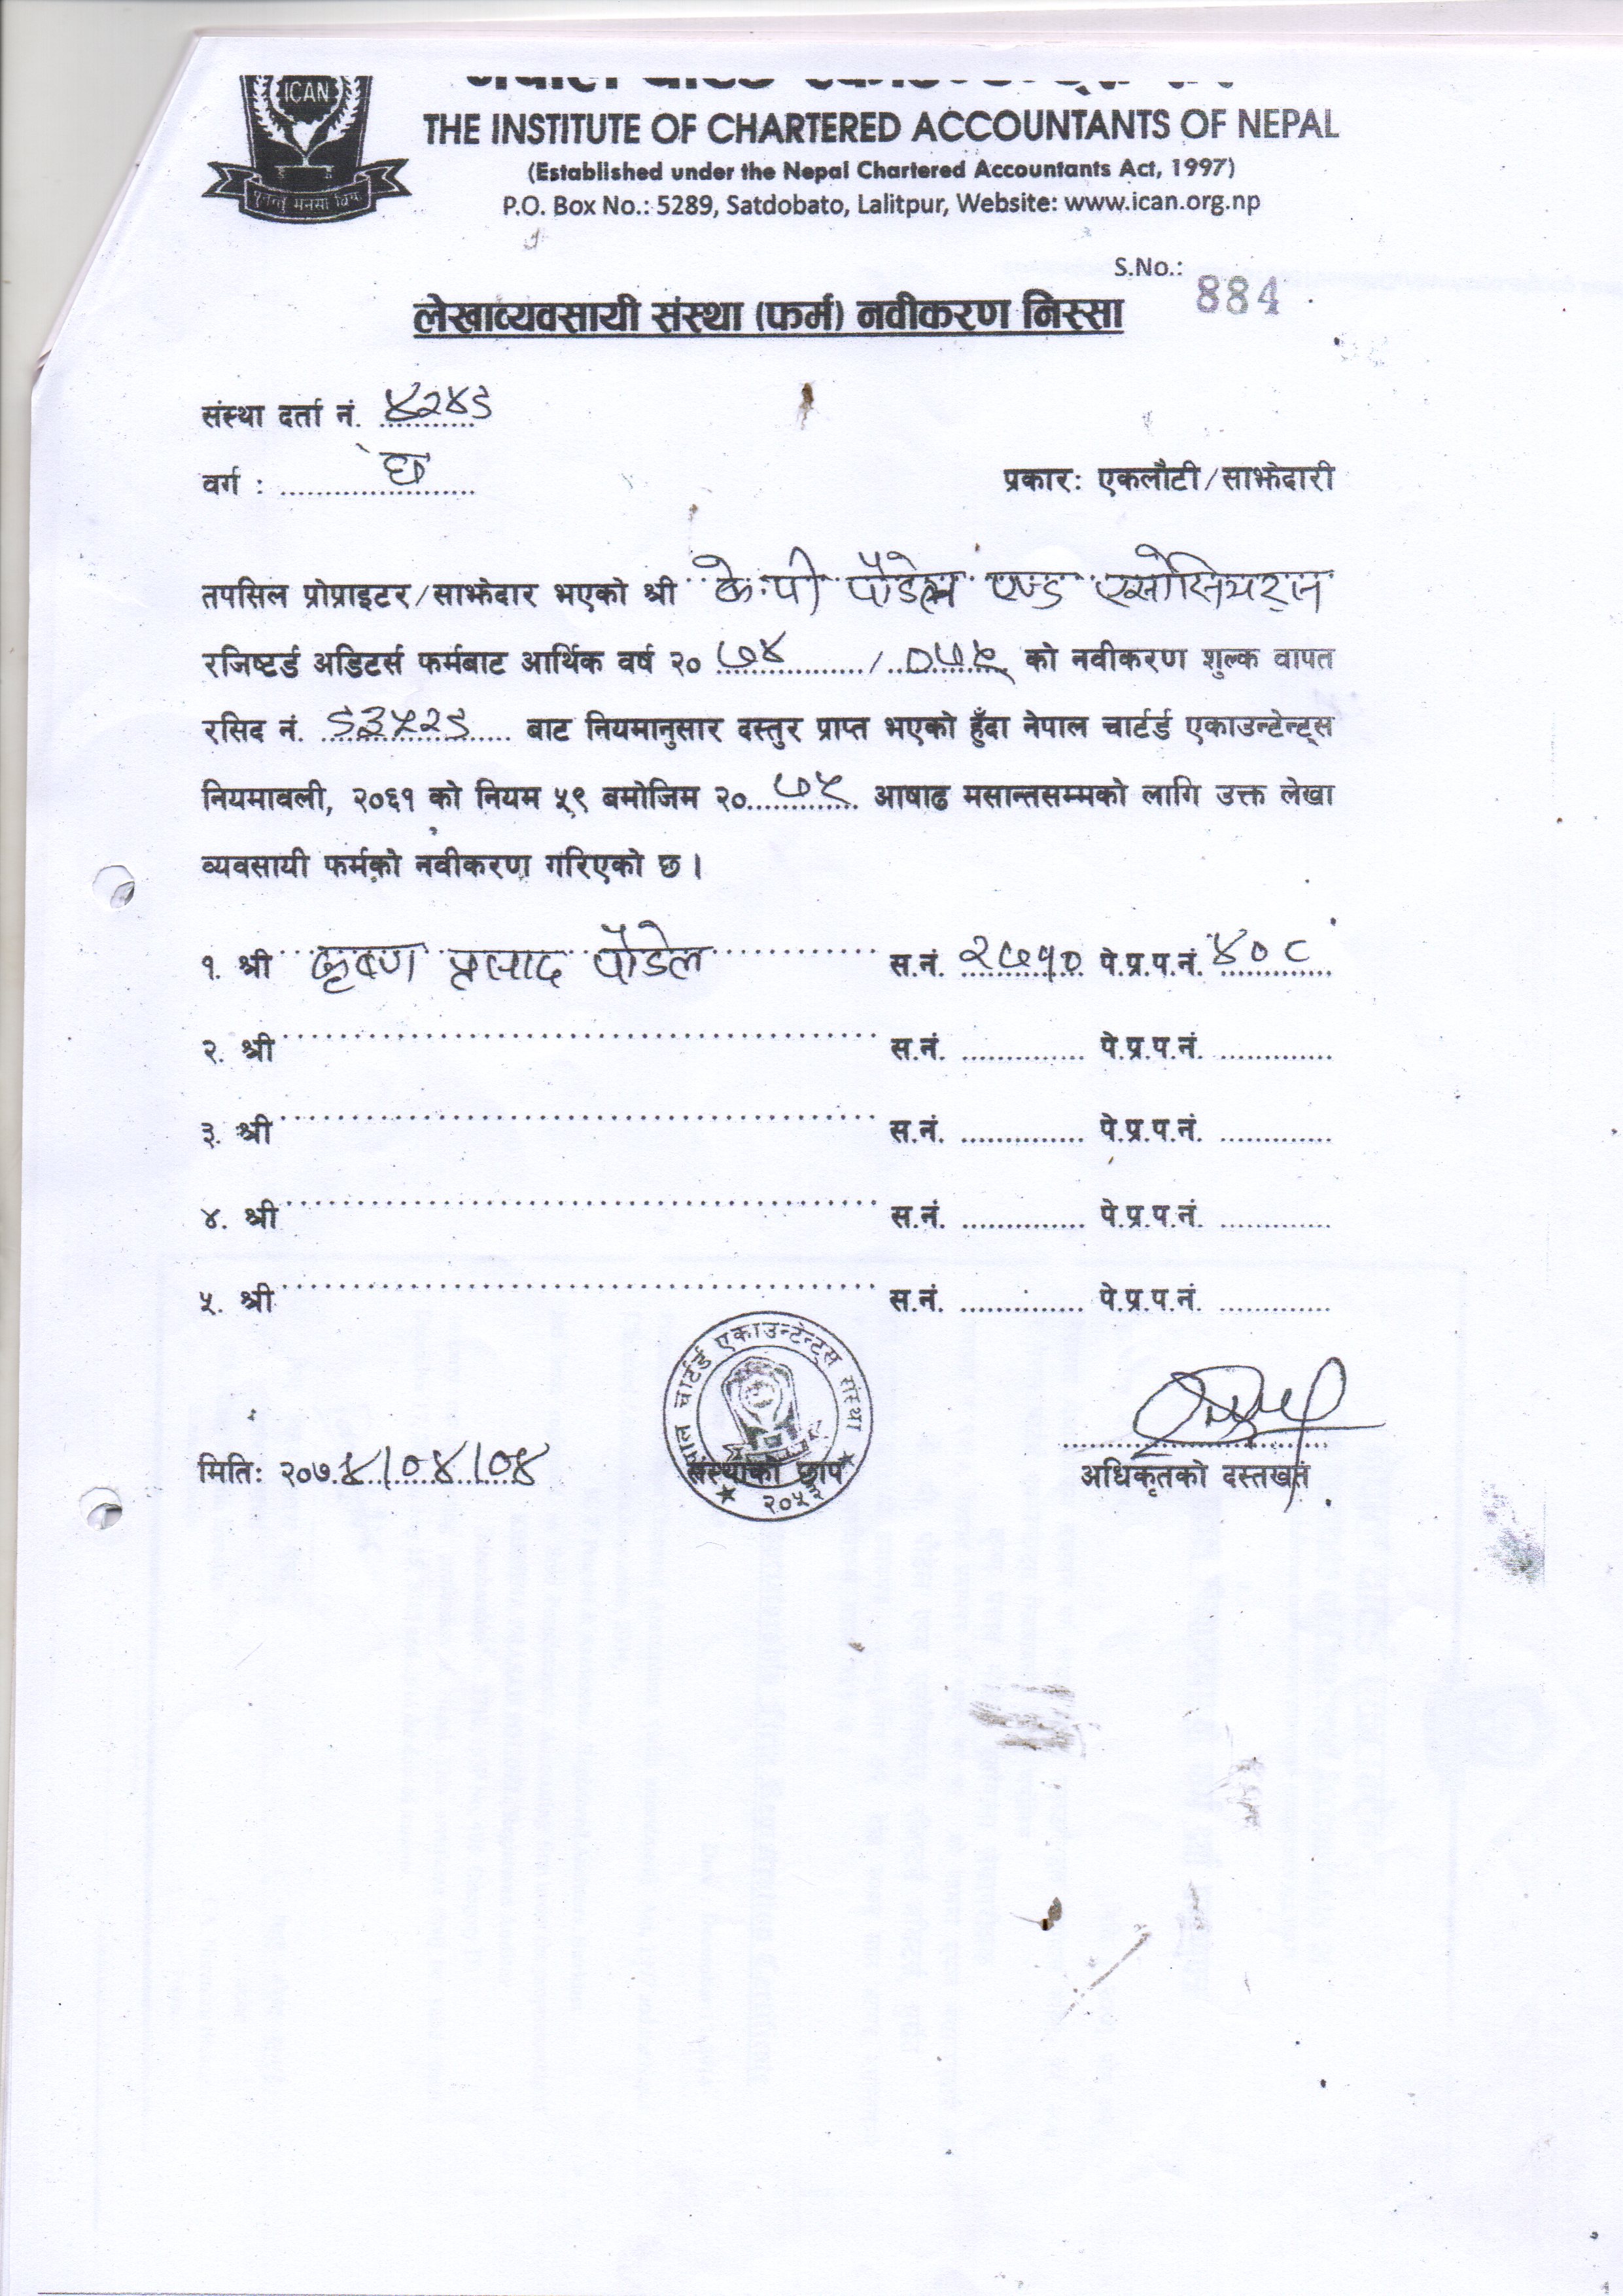 ICAN
THE INSTITUTE OF CHARTERED ACCOUNTANTS OF NEPAL
(Established under the Nepal Chartered Accountants Act, 1997)
P.O. Box No.: 5289, Satdobato, Lalitpur, Website: www.ican.org.np
S.No.: 884
लेखाव्यवसायी संस्था (फर्म) नवीकरण निस्सा
संस्था दर्ता नं. ४२४६
वर्ग : घ
प्रकार: एकलौटी/साझेदारी
तपसिल प्रोप्राइटर/साझेदार भएको श्री के.पी पौडेल एण्ड एसोसियट्स
रजिष्टर्ड अडिटर्स फर्मबाट आर्थिक वर्ष २० ७४ / ०७५ को नवीकरण शुल्क वापत
रसिद नं. ६३५२६ बाट नियमानुसार दस्तुर प्राप्त भएको हुँदा नेपाल चार्टर्ड एकाउन्टेन्ट्स
नियमावली, २०६१ को नियम ५९ बमोजिम २० ७५ आषाढ मसान्तसम्मको लागि उक्त लेखा
व्यवसायी फर्मको नवीकरण गरिएको छ ।
१. श्री कृष्ण प्रसाद पौडेल स.नं. २७१० पे.प्र.प.नं. ४०८
२. श्री स.नं. पे.प्र.प.नं.
३. श्री स.नं. पे.प्र.प.नं.
४. श्री स.नं. पे.प्र.प.नं.
५. श्री स.नं. पे.प्र.प.नं.
चार्टर्ड एकाउन्टेन्ट्स संस्था
२०५३
मिति: २०७४/०४/०४ संस्थाको छाप अधिकृतको दस्तखत